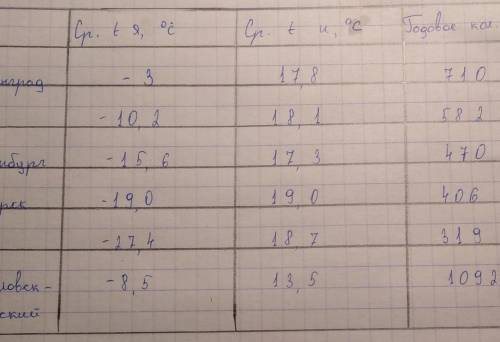 Ср. t Я, °C Ср. t и, °C Годовое кол.
нград - 3 17,8 710
-10,2 18,1 582
нбург -15,6 17,3 470
рск -19,0 19,0 406
-27,4 18,7 319
ловск- -8,5 13,5 1092
ский